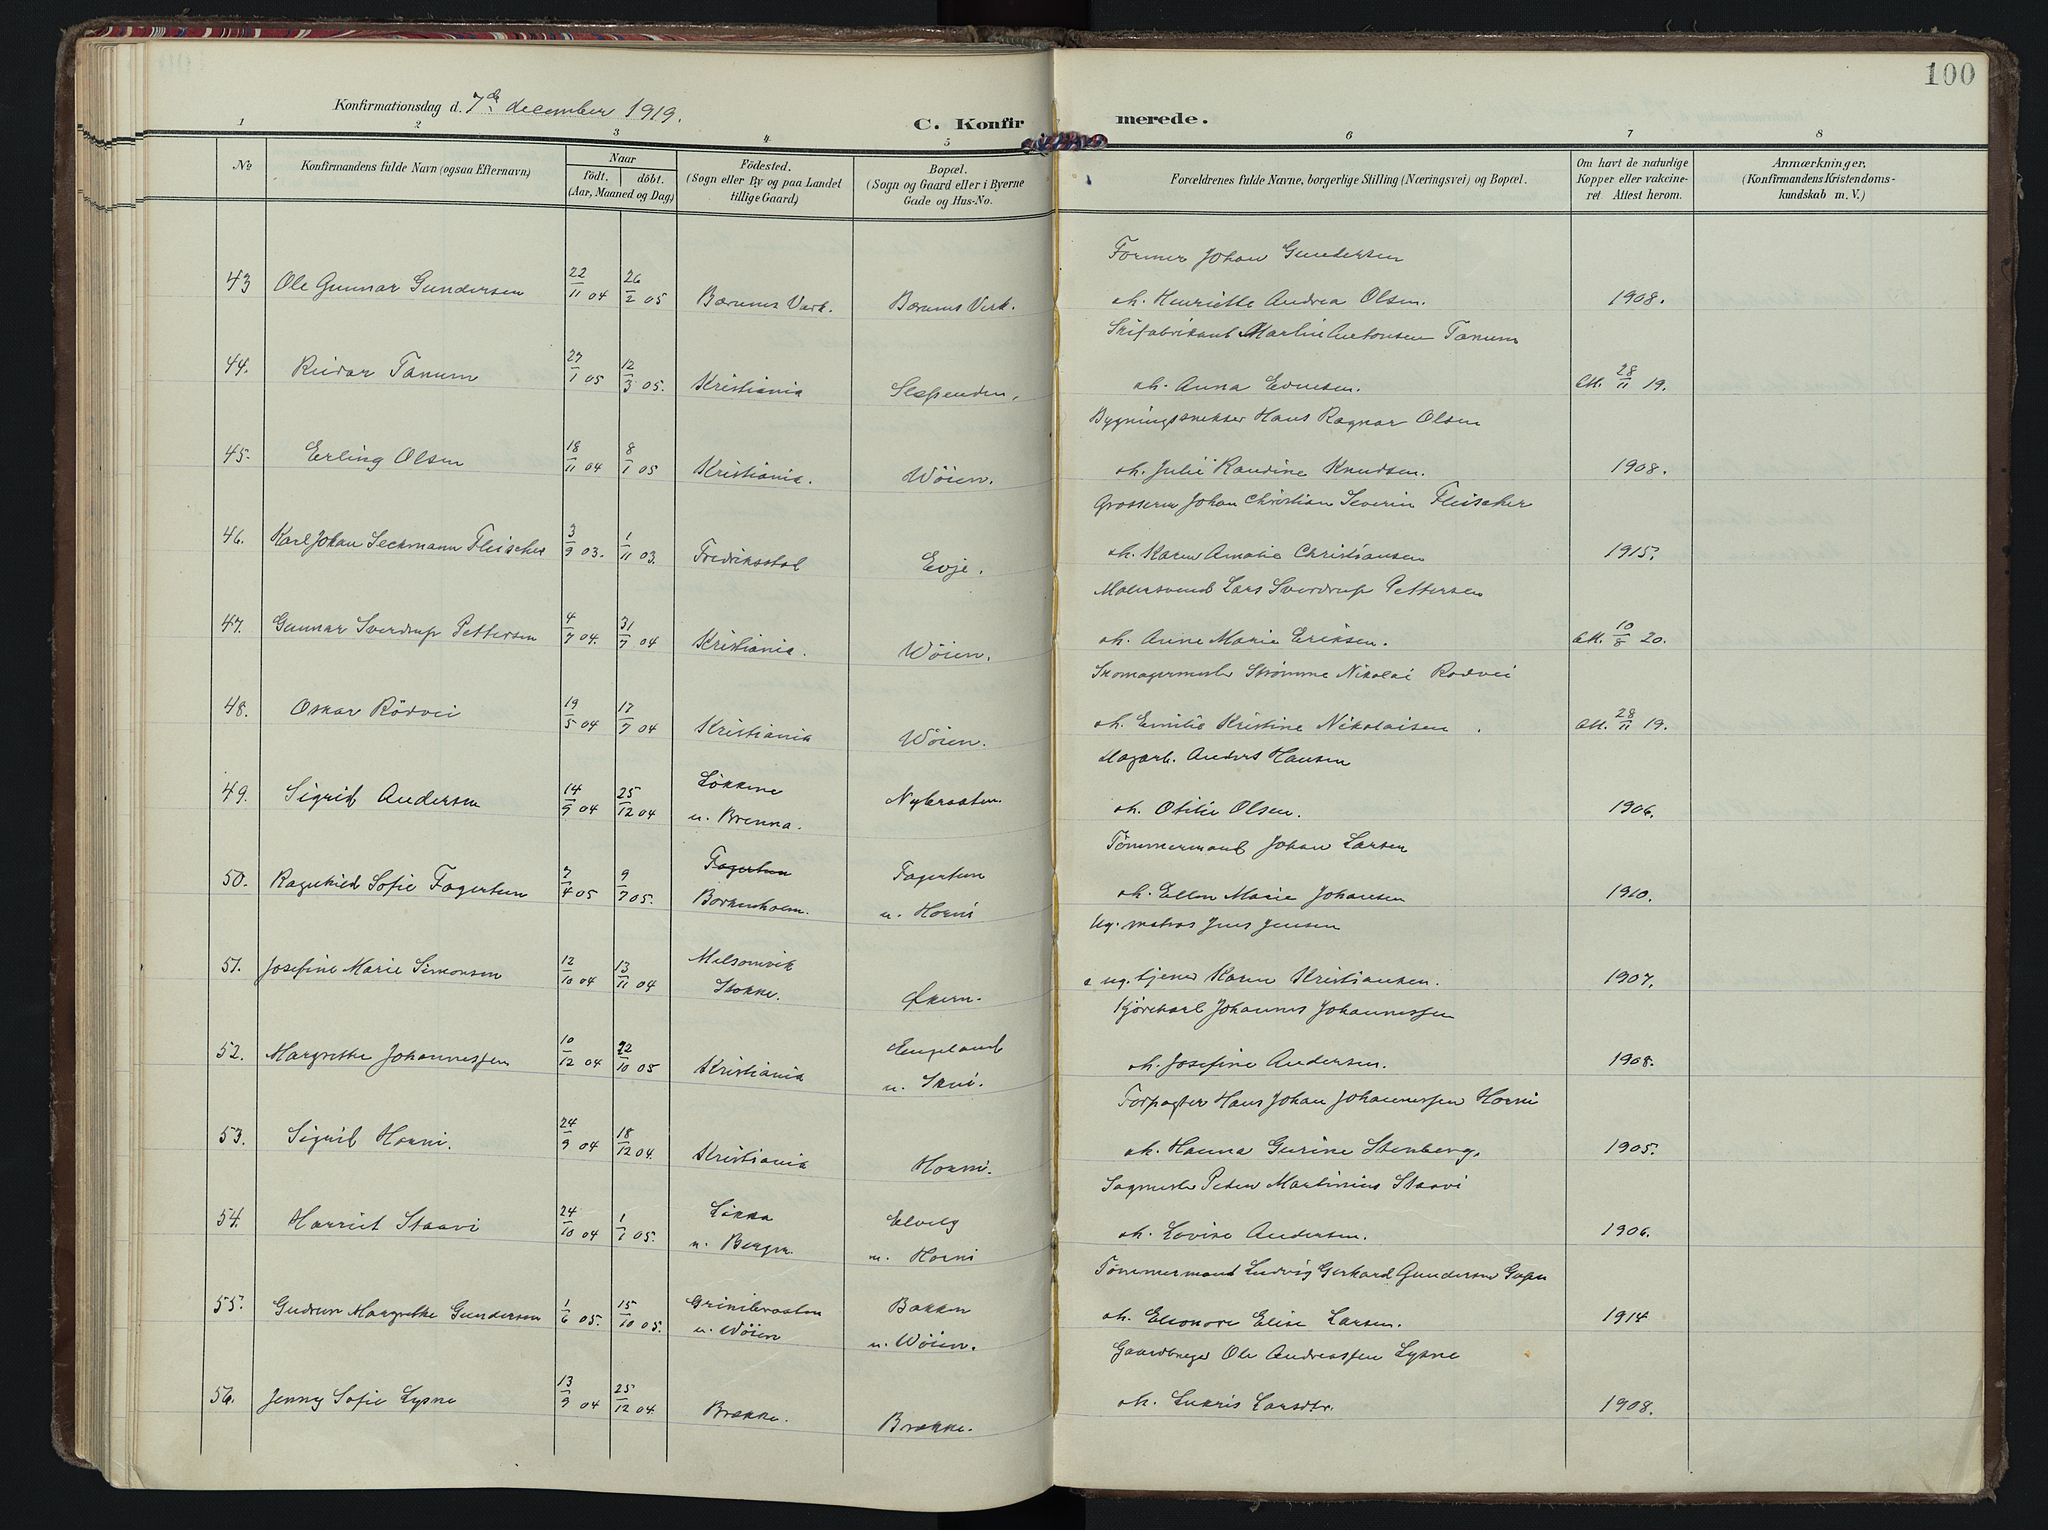 100
Konfirmationsdag d. 7de december 1919.
C. Konfirmerede.
1 2 3 4 5 6 7 8
No
Konfirmandens fulde Navn (ogsaa Efternavn)
Naar
födt. döbt.
(Aar, Maaned og Dag)
Födested.
(Sogn eller By og paa Landet
tillige Gaard)
Bopæl.
(Sogn og Gaard eller i Byerne
Gade og Hus-No.
Forældrenes fulde Navne, borgerlige Stilling (Næringsvei) og Bopæl.
Om havt de naturlige
Kopper eller vakcine-
ret Attest herom.
Anmærkninger.
(Konfirmandens Kristendoms-
kundskab m. V.)
Former Johan Gundersen
43 Ole Gunnar Gundersen 22/11 04 26/2 05 Bærums Værk. Bærums Verk. oh. Henriette Andrea Olsen. 1908.
Skifabrikant Martin Antonsen Tanum
44. Reidar Tanum 27/1 05 12/3 05. Kristiania Slependen, oh. Anna Evensen. Att. 28/11 19.
Bygningssnekker Hans Ragnar Olsen
45. Erling Olsen 18/11 04 8/1 05 Kristiania. Wöien. oh. Julie Randine Knudsen. 1908.
Grosserer Johan Christian Severin Fleischer
46. Karl Johan Seckmann Fleischer 3/9 03. 1/11 03. Fredriksstad Evje. oh. Karen Amalie Christiansen 1915.
Malersvend Lars Sverdrup Pettersen
47. Gunnar Sverdrup Pettersen 4/7 04. 31/7 04 Kristiania. Wöien. oh. Anne Marie Eriksen. Att. 10/8 20.
Skomagermester Strømme Nikolai Rødvei
48. Oskar Rödvei 19/5 04 17/7 04 Kristiania Wöien. oh. Emilie Kristine Nikolaisen. Att. 28/11 19.
Anders Hansen
49. Sigrid Andersen 14/9 04 25/12 04 Løkkene
u. Brenna. Nybraaten. oh. Otilie Olsen. 1906.
Tömmermand Johan Larsen
50. Ragnhild Sofie Fagertun 7/4 05 9/7 05. Fagertun
Borkenholm. Fagertun
u. Horni oh. Ellen Marie Johansen 1910.
Ug. matros Jens Jensen
51. Josefine Marie Simonsen 12/10 04 13/11 04 Melsomvik
Stokke. Økern. ug. tjener Karen Kristiansen. 1907.
Kjörekarl Johannes Johannessen
52. Margrethe Johannessen 10/12 04 22/10 05 Kristiania Engeland
u. Skui. oh. Josefine Andersen. 1908.
Forpagter Hans Johan Johannessen Horni
53. Sigrid Horni. 24/9 04 18/12 04. Kristiania Horni. oh. Hanna Gurine Stenberg. 1905.
Sagmester Peder Martinius Staavi
54. Harriet Staavi 24/10 04 1/1 05. Løkka
u. Berger. Elvely
u. Horni oh. Lovise Andersen. 1906.
Tömmermand Ludvig Gerhard Gundersen
55. Gudrun Margrethe Gundersen 1/6 05. 15/10 05. Grinibraaten
u. Wöien Bakken
u. Wöien. oh. Eleonore Elise Larsen. 1914
Gaardbruger Ole Andreassen Lysne
56. Jenny Sofie Lysne 13/9 04 25/12 04. Brække. Brække. oh. Lukris Larsdtr. 1908.